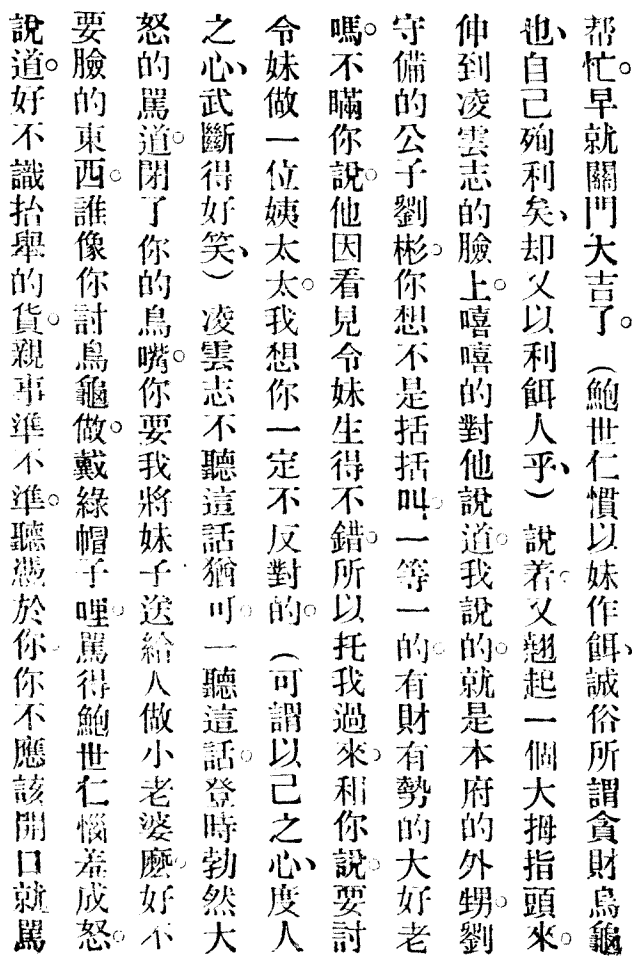 帮忙。早就關門大吉了。（鮑世仁慣以妹作餌、誠俗所謂貪財烏龜
也、自己殉利矣、却又以利餌人乎、）說着。又翹起一個大拇指頭來。
伸到凌雲志的臉上。嘻嘻的對他說道。我說的。就是本府的外甥。劉
守備的公子劉彬。你想不是括括叫。一等一的。有財有勢的大好老
嗎。不瞞你說。他因看見令妹生得不錯。所以托我過來。和你說。要討
令妹做一位姨太太。我想你一定不反對的。（可謂以己之心、度人
之心、武斷得好笑、）凌雲志不聽這話猶可。一聽這話。登時勃然大
怒的罵道。閉了你的鳥嘴。你要我將妹子送給人做小老婆麽。好不
要臉的東西。誰像你討烏龜做。戴綠帽子哩。罵得鮑世仁惱羞成怒。
說道。好不識抬舉的貨。親事準不準。聽憑於你。你不應該開口就罵